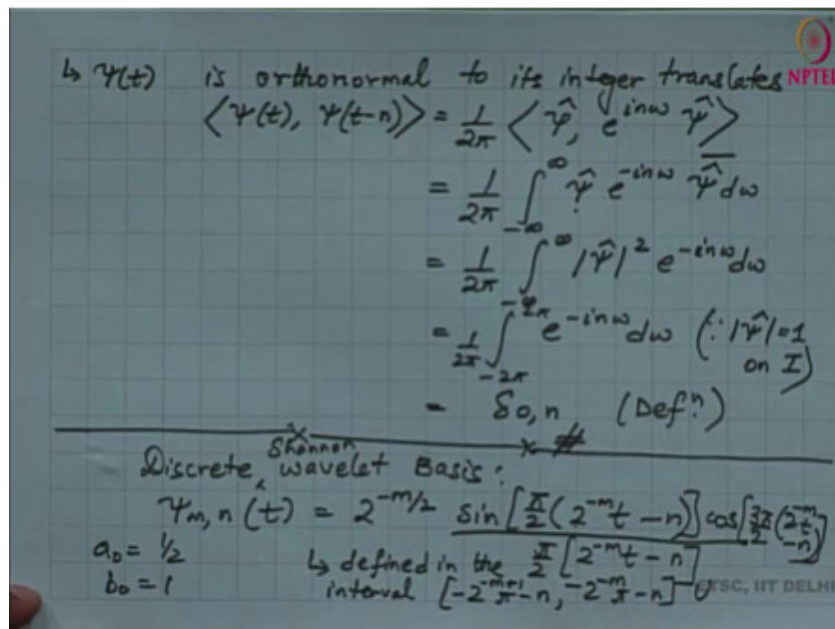 ↳ Ψ(t) is orthonormal to its integer translates
NPTEL
⟨Ψ(t), Ψ(t-n)⟩ = 1/2π ⟨Ψ̂, e^{inω} Ψ̂⟩
= 1/2π ∫_{-∞}^{∞} Ψ̂ e^{-inω} \overline{Ψ̂} dω
= 1/2π ∫_{-∞}^{∞} |Ψ̂|² e^{-inω} dω
= 1/2π ∫_{-2π}^{2π} e^{-inω} dω (∵ |Ψ̂|=1 on I)
= δ0,n (Defⁿ.)
Discrete Shannon wavelet Basis:
Ψm,n(t) = 2^{-m/2} sin[π/2(2^{-m}t - n)] cos[3π/2(2^{-m}t - n)]
π/2[2^{-m}t - n]
a₀ = 1/2 ↳ defined in the
b₀ = 1 interval [-2^{-m+1}π - n, -2^{-m}π - n]
ETSC, IIT DELHI